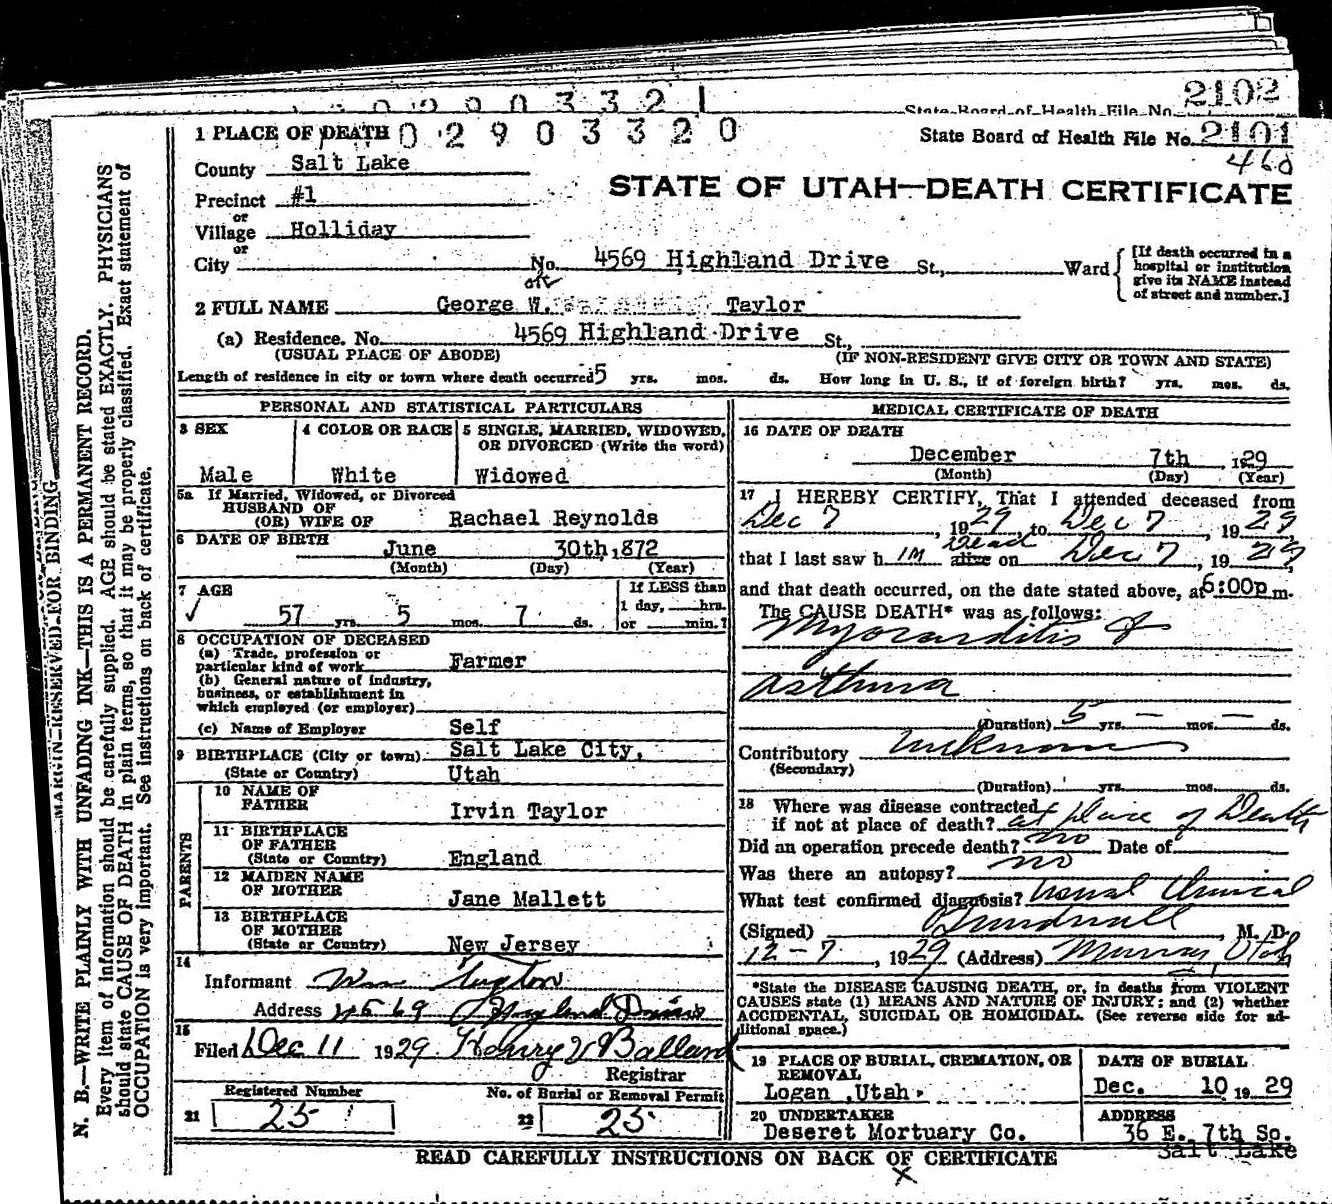 2102
State Board of Health File No.
1 PLACE OF DEATH 0 2 9 0 3 3 2 0 State Board of Health File No. 2101
460
County Salt Lake
STATE OF UTAH—DEATH CERTIFICATE
Precinct #1
or
Village Holliday
or
City No. 4569 Highland Drive St., Ward
[If death occurred in a
hospital or institution
give its NAME instead
of street and number.]
2 FULL NAME George W. Taylor
(a) Residence. No. 4569 Highland Drive St.,
(USUAL PLACE OF ABODE) (IF NON-RESIDENT GIVE CITY OR TOWN AND STATE)
Length of residence in city or town where death occurred 5 yrs. mos. ds. How long in U. S., if of foreign birth? yrs. mos. ds.
PERSONAL AND STATISTICAL PARTICULARS
3 SEX
Male
4 COLOR OR RACE
White
5 SINGLE, MARRIED, WIDOWED,
OR DIVORCED (Write the word)
Widowed
5a If Married, Widowed, or Divorced
HUSBAND OF
(OR) WIFE OF Rachael Reynolds
6 DATE OF BIRTH
June 30th, 872
(Month) (Day) (Year)
7 AGE
57 yrs. 5 mos. 7 ds.
If LESS than
1 day, hrs.
or min.?
8 OCCUPATION OF DECEASED
(a) Trade, profession or
particular kind of work Farmer
(b) General nature of industry,
business, or establishment in
which employed (or employer)
(c) Name of Employer Self
9 BIRTHPLACE (City or town) Salt Lake City,
(State or Country) Utah
PARENTS
10 NAME OF
FATHER Irvin Taylor
11 BIRTHPLACE
OF FATHER
(State or Country) England
12 MAIDEN NAME
OF MOTHER Jane Mallett
13 BIRTHPLACE
OF MOTHER
(State or Country) New Jersey
14
Informant
Address 4569 Highland Drive
15
Filed Dec 11 1929 Henry V Ballard
Registrar
Registered Number No. of Burial or Removal Permit
21 25 22 25
MEDICAL CERTIFICATE OF DEATH
16 DATE OF DEATH
December 7th, 1929
(Month) (Day) (Year)
17 I HEREBY CERTIFY, That I attended deceased from
Dec 7, 1929 to Dec 7, 1929,
that I last saw him alive Dead on Dec 7, 1929,
and that death occurred, on the date stated above, at 6:00p m.
The CAUSE DEATH* was as follows:
Myocarditis &
asthma
(Duration) 5 yrs. — mos. — ds.
Contributory Unknown
(Secondary)
(Duration) yrs. mos. ds.
18 Where was disease contracted
if not at place of death? at place of Death
Did an operation precede death? no Date of
Was there an autopsy? no
What test confirmed diagnosis? Usual Clinical
(Signed) M. D.
12-7, 1929 (Address) Murray, Utah
*State the DISEASE CAUSING DEATH, or, in deaths from VIOLENT
CAUSES state (1) MEANS AND NATURE OF INJURY; and (2) whether
ACCIDENTAL, SUICIDAL OR HOMICIDAL. (See reverse side for ad-
ditional space.)
19 PLACE OF BURIAL, CREMATION, OR
REMOVAL
Logan, Utah.
DATE OF BURIAL
Dec. 10 1929
20 UNDERTAKER
Deseret Mortuary Co.
ADDRESS
36 E. 7th So.
Salt Lake
READ CAREFULLY INSTRUCTIONS ON BACK OF CERTIFICATE
X
MARGIN RESERVED FOR BINDING
N. B.—WRITE PLAINLY WITH UNFADING INK—THIS IS A PERMANENT RECORD.
Every item of information should be carefully supplied. AGE should be stated EXACTLY. PHYSICIANS
should state CAUSE OF DEATH in plain terms, so that it may be properly classified. Exact statement of
OCCUPATION is very important. See instructions on back of certificate.